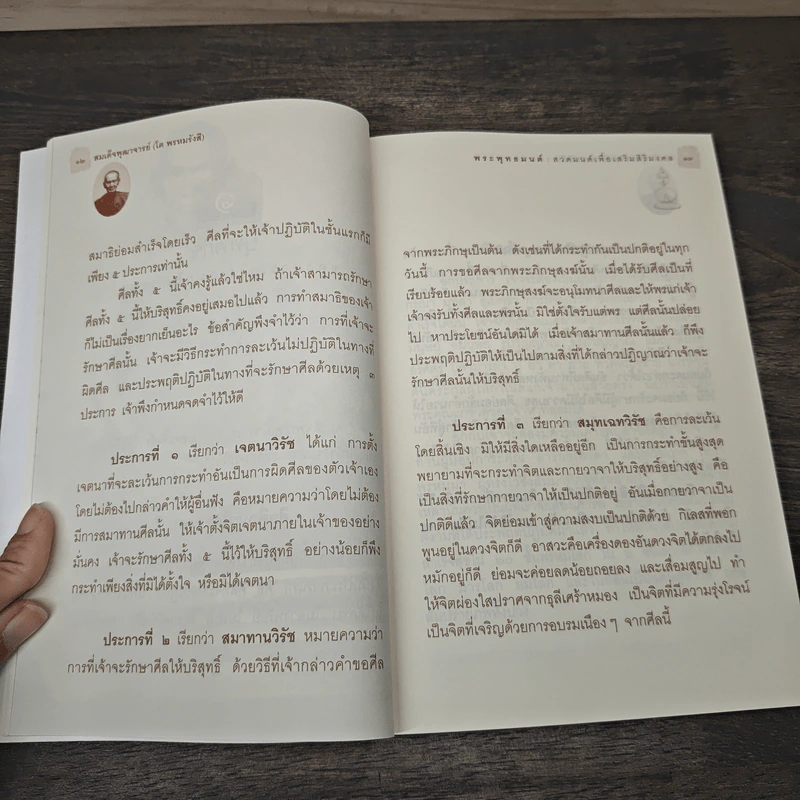 ๑๒ สมเด็จพุฒาจารย์ (โต พรหมรังสี)
สมาธิย่อมสำเร็จโดยเร็ว ศีลที่จะให้เจ้าปฏิบัติในชั้นแรกก็มี
เพียง ๕ ประการเท่านั้น
ศีลทั้ง ๕ นี้เจ้าคงรู้แล้วใช่ไหม ถ้าเจ้าสามารถรักษา
ศีลทั้ง ๕ นี้ให้บริสุทธิ์คงอยู่เสมอไปแล้ว การทำสมาธิของเจ้า
ก็ไม่เป็นเรื่องยากเย็นอะไร ข้อสำคัญพึงจำไว้ว่า การที่เจ้าจะ
รักษาศีลนั้น เจ้าจะมีวิธีกระทำการละเว้นไม่ปฏิบัติในทางที่
ผิดศีล และประพฤติปฏิบัติในทางที่จะรักษาศีลด้วยเหตุ ๓
ประการ เจ้าพึงกำหนดจดจำไว้ให้ดี
ประการที่ ๑ เรียกว่า เจตนาวิรัช ได้แก่ การตั้ง
เจตนาที่จะละเว้นการกระทำอันเป็นการผิดศีลของตัวเจ้าเอง
โดยไม่ต้องไปกล่าวคำให้ผู้อื่นฟัง คือหมายความว่าโดยไม่ต้อง
มีการสมาทานศีลนั้น ให้เจ้าตั้งจิตเจตนาภายในเจ้าของอย่าง
มั่นคง เจ้าจะรักษาศีลทั้ง ๕ นี้ไว้ให้บริสุทธิ์ อย่างน้อยก็พึง
กระทำเพียงสิ่งที่มิได้ตั้งใจ หรือมิได้เจตนา
ประการที่ ๒ เรียกว่า สมาทานวิรัช หมายความว่า
การที่เจ้าจะรักษาศีลให้บริสุทธิ์ ด้วยวิธีที่เจ้ากล่าวคำขอศีล
พระพุทธมนต์ : สวดมนต์เพื่อเสริมสิริมงคล ๑๓
จากพระภิกษุเป็นต้น ดังเช่นที่ได้กระทำกันเป็นปกติอยู่ในทุก
วันนี้ การขอศีลจากพระภิกษุสงฆ์นั้น เมื่อได้รับศีลเป็นที่
เรียบร้อยแล้ว พระภิกษุสงฆ์จะอนุโมทนาศีลและให้พรแก่เจ้า
เจ้าจงรับทั้งศีลและพรนั้น มิใช่ตั้งใจรับแต่พร แต่ศีลนั้นปล่อย
ไป หาประโยชน์อันใดมิได้ เมื่อเจ้าสมาทานศีลนั้นแล้ว ก็พึง
ประพฤติปฏิบัติให้เป็นไปตามสิ่งที่ได้กล่าวปฏิญาณว่าเจ้าจะ
รักษาศีลนั้นให้บริสุทธิ์
ประการที่ ๓ เรียกว่า สมุทเฉทวิรัช คือการละเว้น
โดยสิ้นเชิง มิให้มีสิ่งใดเหลืออยู่อีก เป็นการกระทำขั้นสูงสุด
พยายามที่จะกระทำจิตและกายวาจาให้บริสุทธิ์อย่างสูง คือ
เป็นสิ่งที่รักษากายวาจาให้เป็นปกติอยู่ อันเมื่อกายวาจาเป็น
ปกติดีแล้ว จิตย่อมเข้าสู่ความสงบเป็นปกติด้วย กิเลสที่พอก
พูนอยู่ในดวงจิตก็ดี อาสวะคือเครื่องดองอันดวงจิตได้ตกลงไป
หมักอยู่ก็ดี ย่อมจะค่อยลดน้อยถอยลง และเสื่อมสูญไป ทำ
ให้จิตผ่องใสปราศจากธุลีเศร้าหมอง เป็นจิตที่มีความรุ่งโรจน์
เป็นจิตที่เจริญด้วยการอบรมเนือง ๆ จากศีลนี้